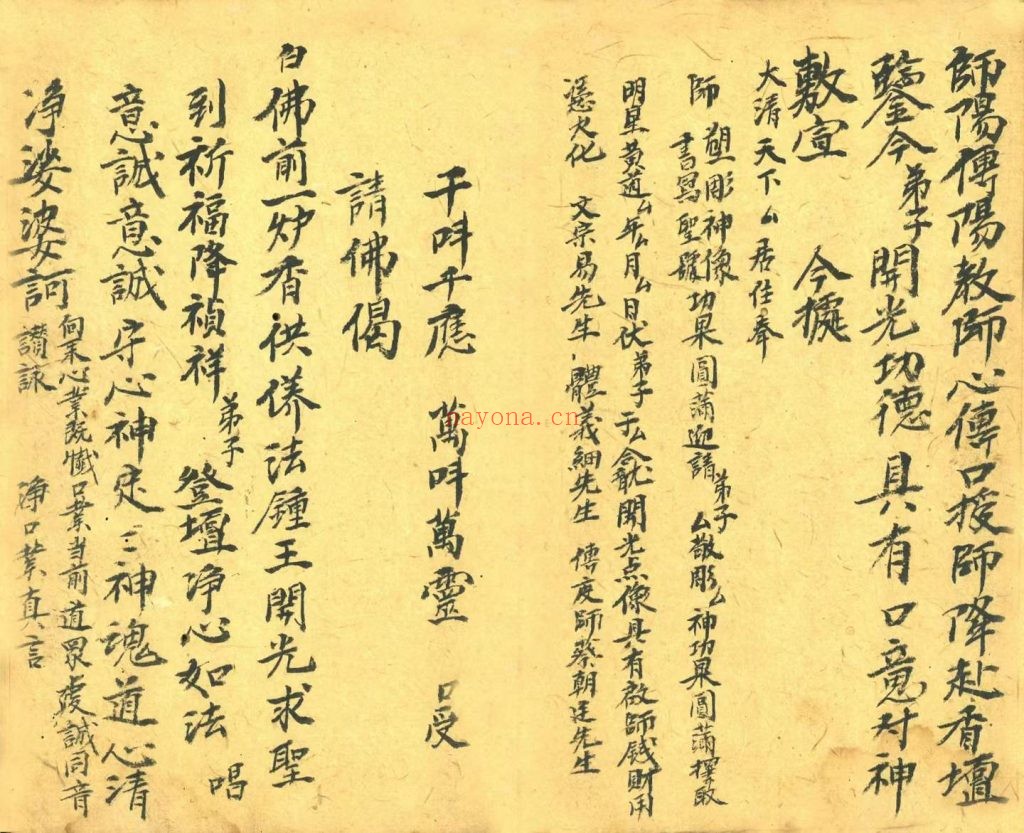 師陽傳陽教師心傳口授師降赴香壇
鑒今弟子開光功德具有口意对神
敷宣 今據
大清天下厶居住奉
師 塑彫神像書寫聖號功果圓蒲迎請弟子厶敬彫厶神功果圓蒲擇取
明星黃道厶年厶月厶日伏弟子于厶開光点像具有啟師錢財用
憑火化 文宗易先生 體義細先生 傳度師蔡朝廷先生
千呌千應 萬呌萬靈 口受
請佛偈
白佛前一炉香供养法鍾王開光求聖
到祈福降禎祥弟子登壇净心如法 唱
意誠意誠守心神定三神魂道心清
净婆婆訶 向来心業既懺口業当前道眾虔誠同音
讃詠 净口業真言
nayona.cn